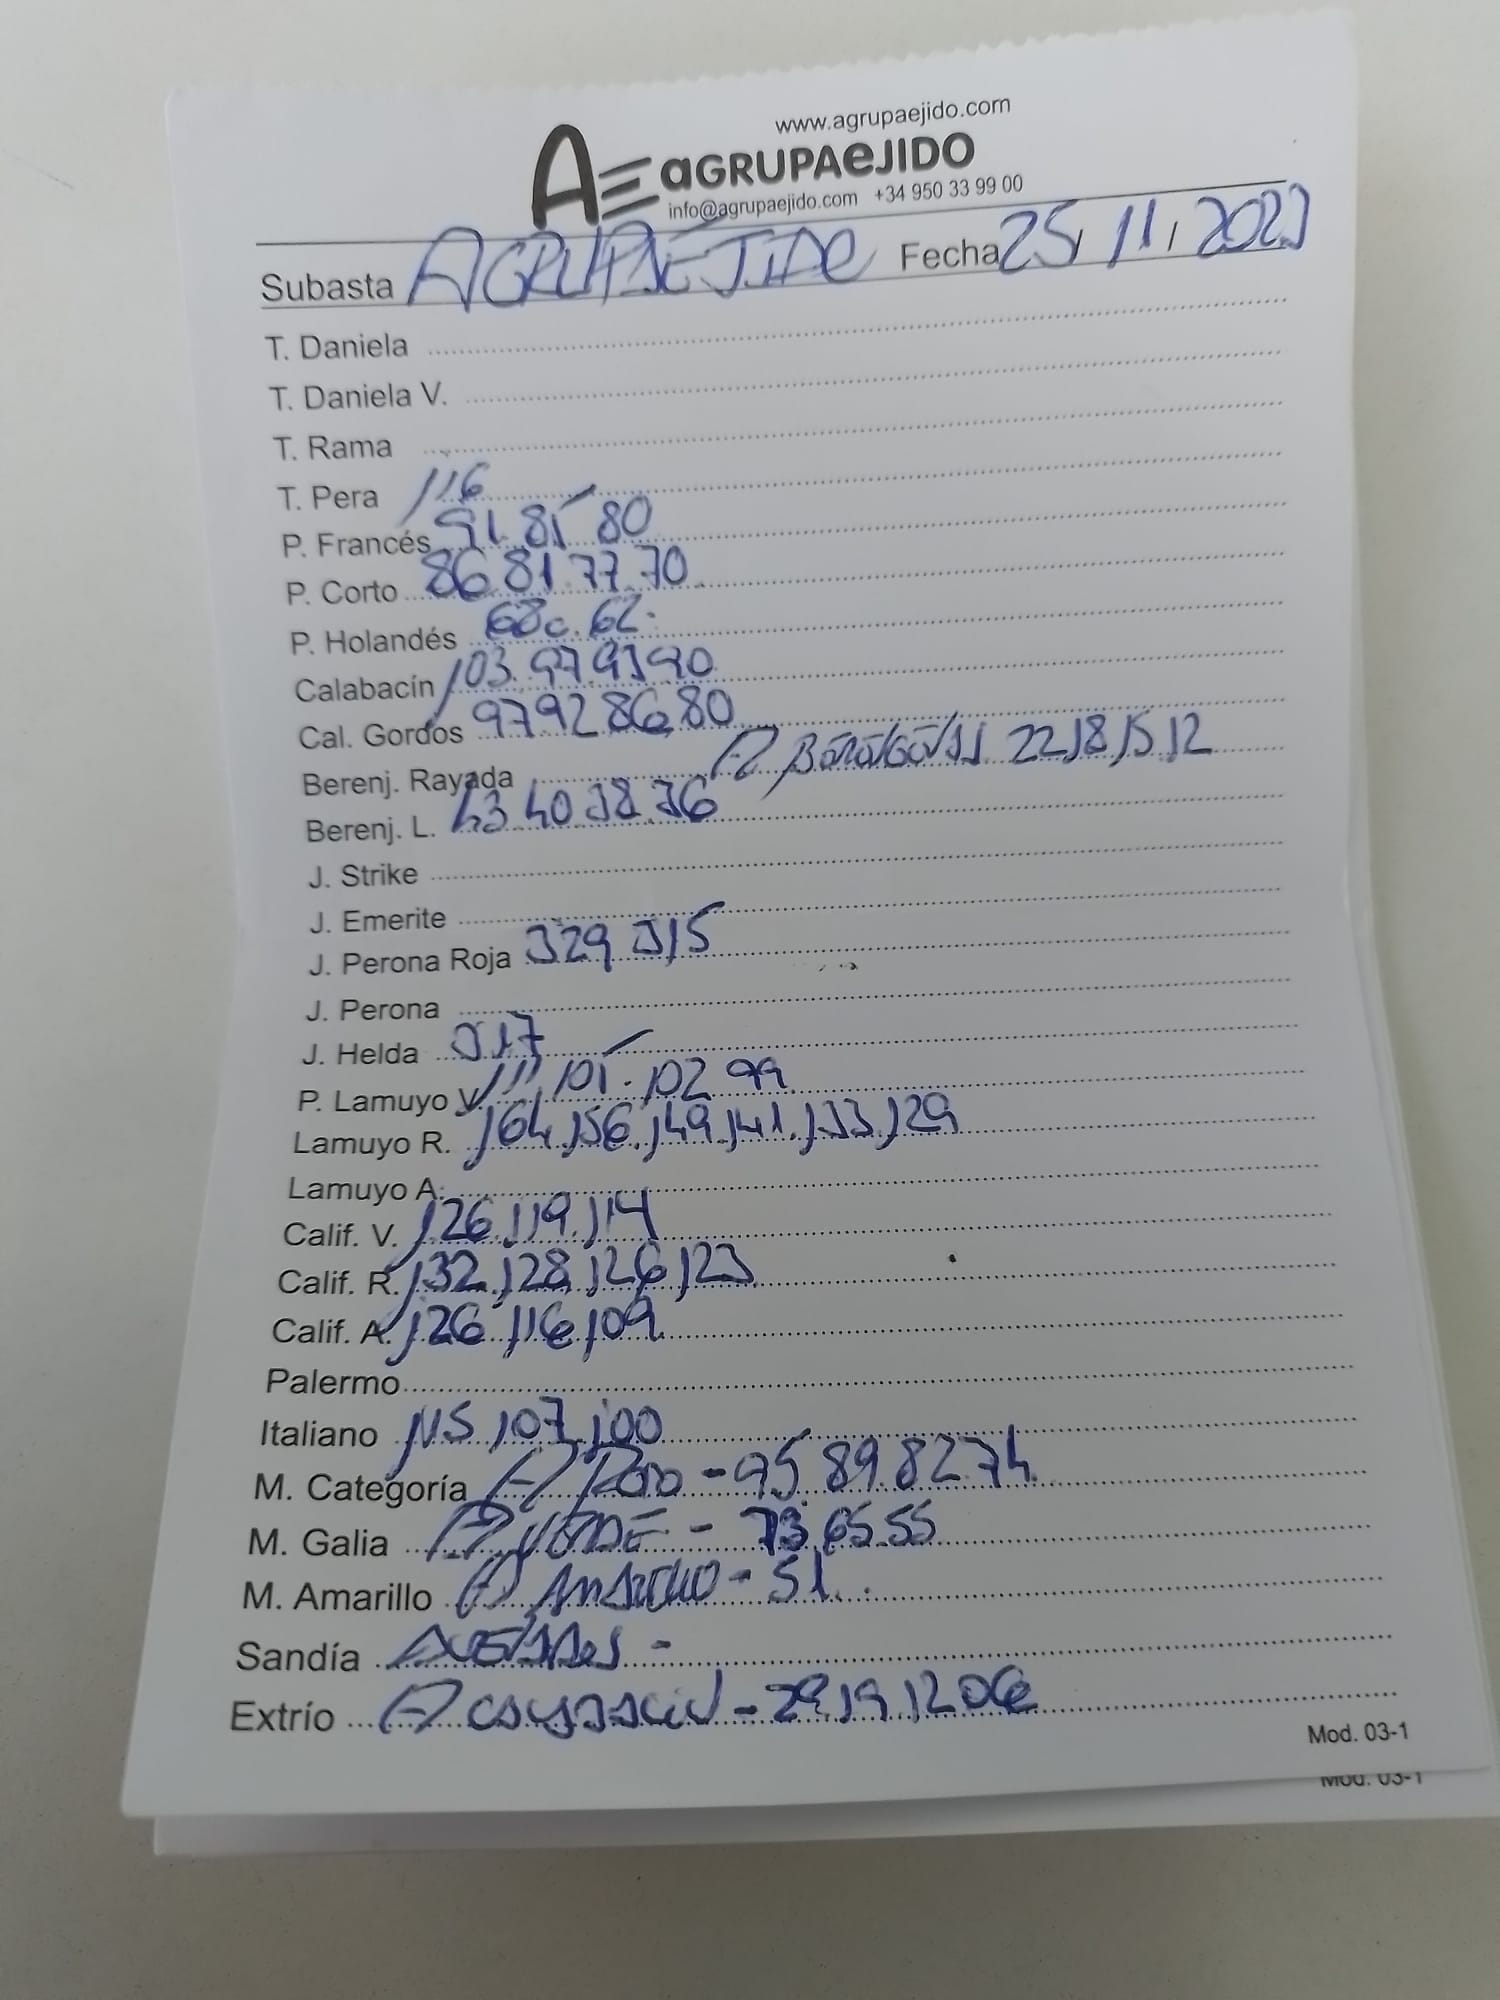 www.agrupaejido.com
AE aGRUPAeJIDO
info@agrupaejido.com +34 950 33 99 00
Subasta AGRUPAEJIDO Fecha 25, 11, 2023
T. Daniela
T. Daniela V.
T. Rama
T. Pera 116
P. Francés 91. 85 80
P. Corto 86 81 77 70
P. Holandés 68c. 62.
Calabacín 103. 97 93 90
Cal. Gordos 97 92 86 80
Berenj. Rayada 22 18 15 12
Berenj. L. 43 40 38 36
J. Strike
J. Emerite
J. Perona Roja 329 315
J. Perona
J. Helda 317
P. Lamuyo V. 111, 105. 102 99
Lamuyo R. 164, 156, 149, 141, 133, 129
Lamuyo A.
Calif. V. 126, 119, 114
Calif. R. 132, 128, 126, 123
Calif. A. 126 116 109
Palermo
Italiano 115 107 100
M. Categoría A Rojo - 95 89 82 74
M. Galia A VERDE - 73 65 55
M. Amarillo A Amarillo - 51.
Sandía -
Extrío A Calabacin - 29 19 12 06
Mod. 03-1
Mod. 03-1